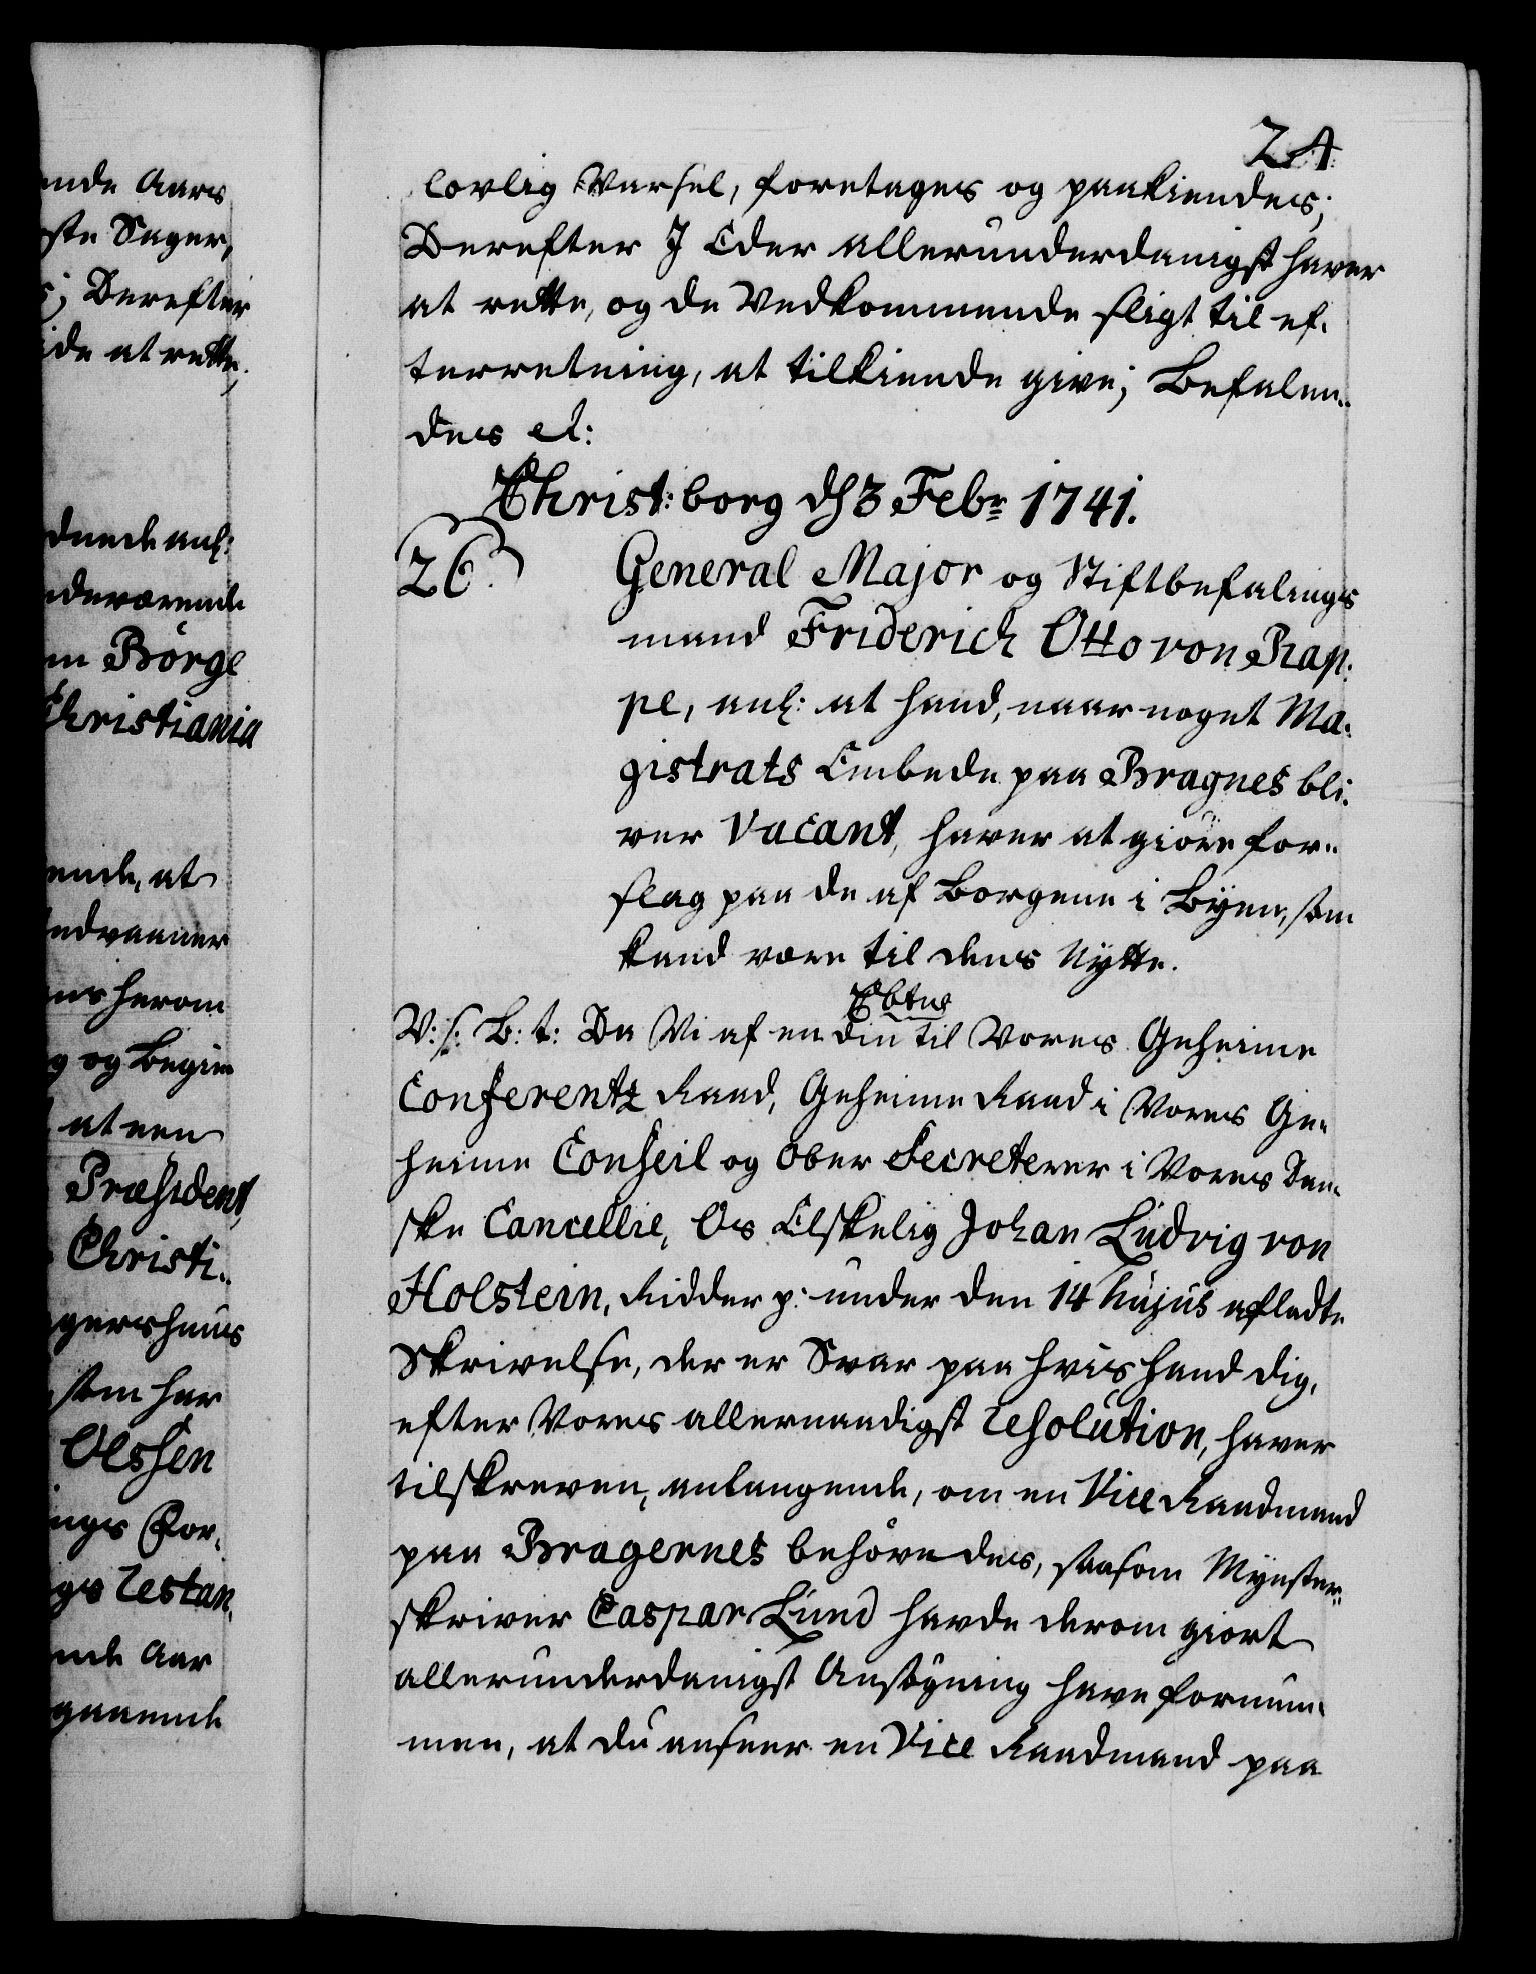 ende Aars
ste Sager,
s; Derefter
ide at rette,
anl:
nderværende
en Börge
Christiania
ende, at
Indvaaner
herom
g og Begier
at een
Præsident,
Christi-
gershuus
som har
Olssen
ings For-
gs Testan-
nde Aar
gaaende
24
lovlig Varsel, foretages og paakiendes;
Derefter I Eder allerunderdanigst haver
at rette, og de Vedkommende sligt til ef-
terretning, at tilkiende give; Befalen-
des et:
Christ: borg d 3 Febr 1741.
26.
General Major og Stiftbefalings
mand Friderich Otto von Rap-
pe, anl: at hand, naar noget Ma-
gistrats Embede paa Bragnes bli-
ver Vacant, haver at giöre for-
slag paa de af Borgene i Byen, som
kand være til dens Nytte.
V: s: B: t: Da Vi af en din til Vores Geheime
Conferentz Raad, Geheime Raad i Vores Ge-
heime Conseil og Ober Secreterer i Vores Dan-
ske Cancellie, Os Elskelig Johan Ludvig von
Holstein, Ridder p: under den 14 hujus afladte
Skrivelse, der er Svar paa hvis hand dig,
efter Vores allernaadigst resolution, haver
tilskreven, anlangende, om en Vice Raadmand
paa Bragernes behövedes, saasom Mynster-
skriver Caspar Lund havde derom giort
allerunderdanigst Ansögning have fornum-
men, at du anseer en Vice Raadmand paa